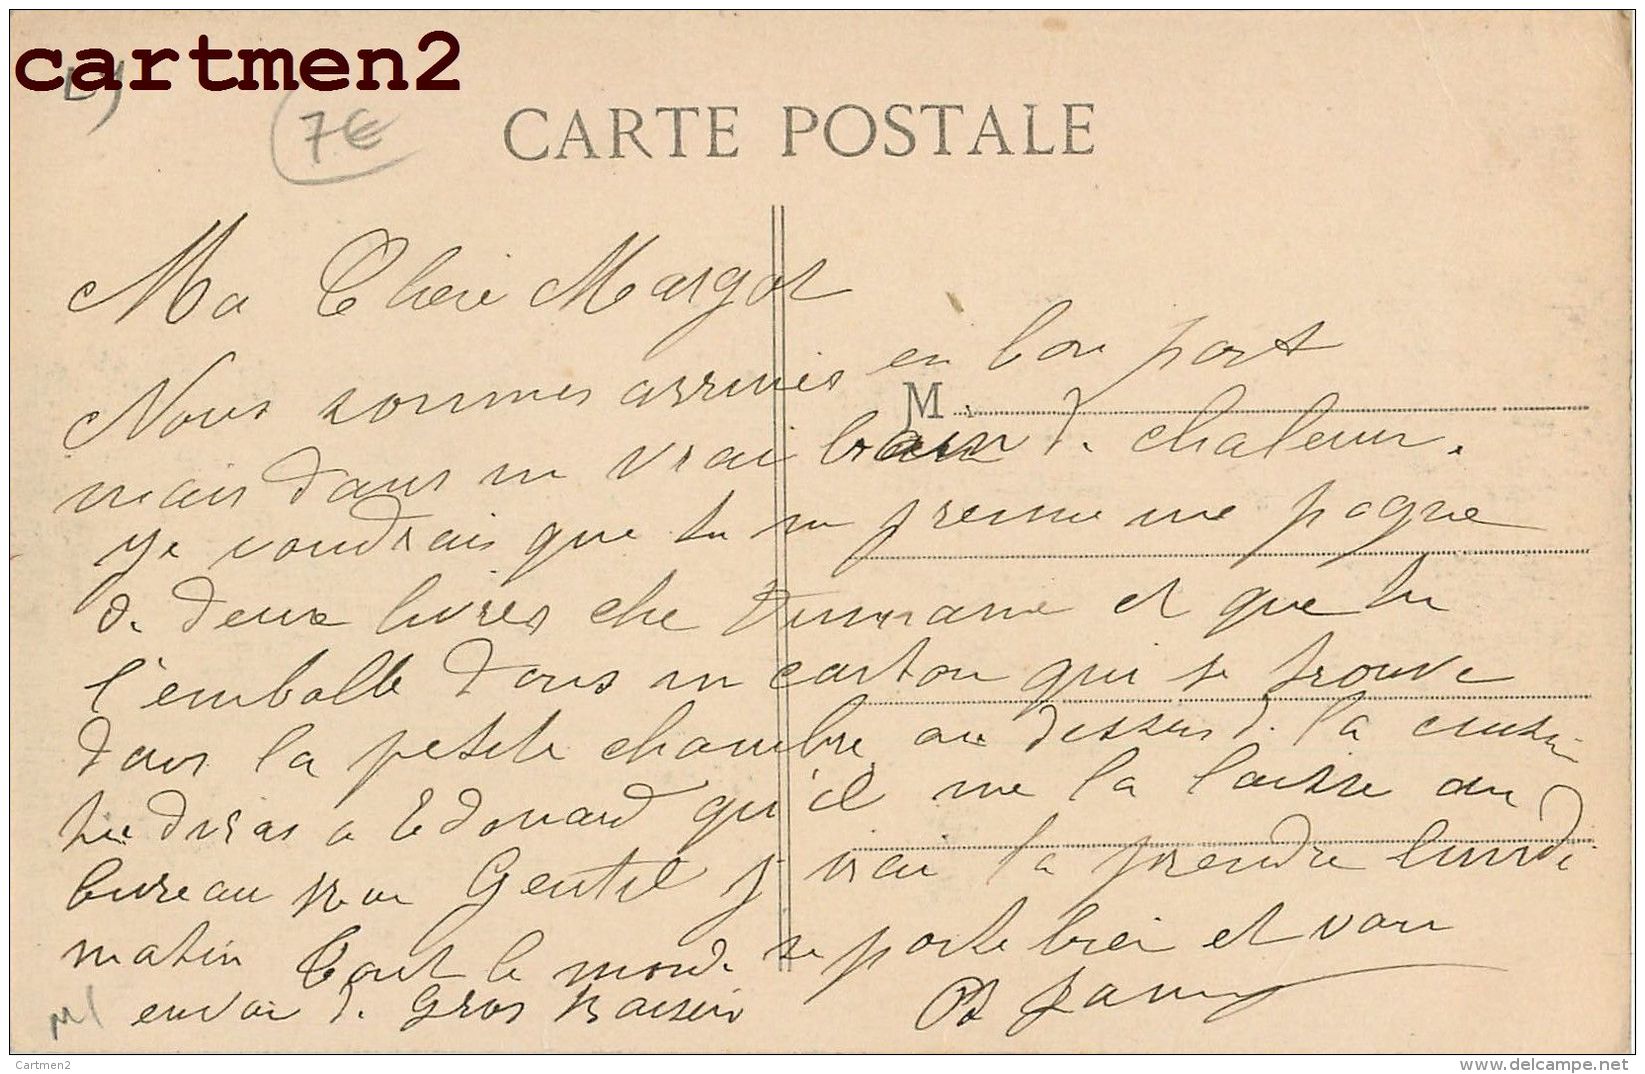 cartmen2
7€
CARTE POSTALE
Ma Chere Margot
Nous sommes arrivés en bon port
M.
mais dans un vrai bain d. chaleur.
je voudrais que tu me prenne une pogne
d. deux livres che et que tu
l'emballe dans un carton qui se trouve
dans la petite chambre au dessus d. la cuisin
tu diras a Edouard qu'il me la laisse au
bureau rue Gentil j irai la prendre lundi
matin Tout le monde se porte bien et vous
envoi d. Gros Baiser
Cartmen2
http://www.delcampe.net